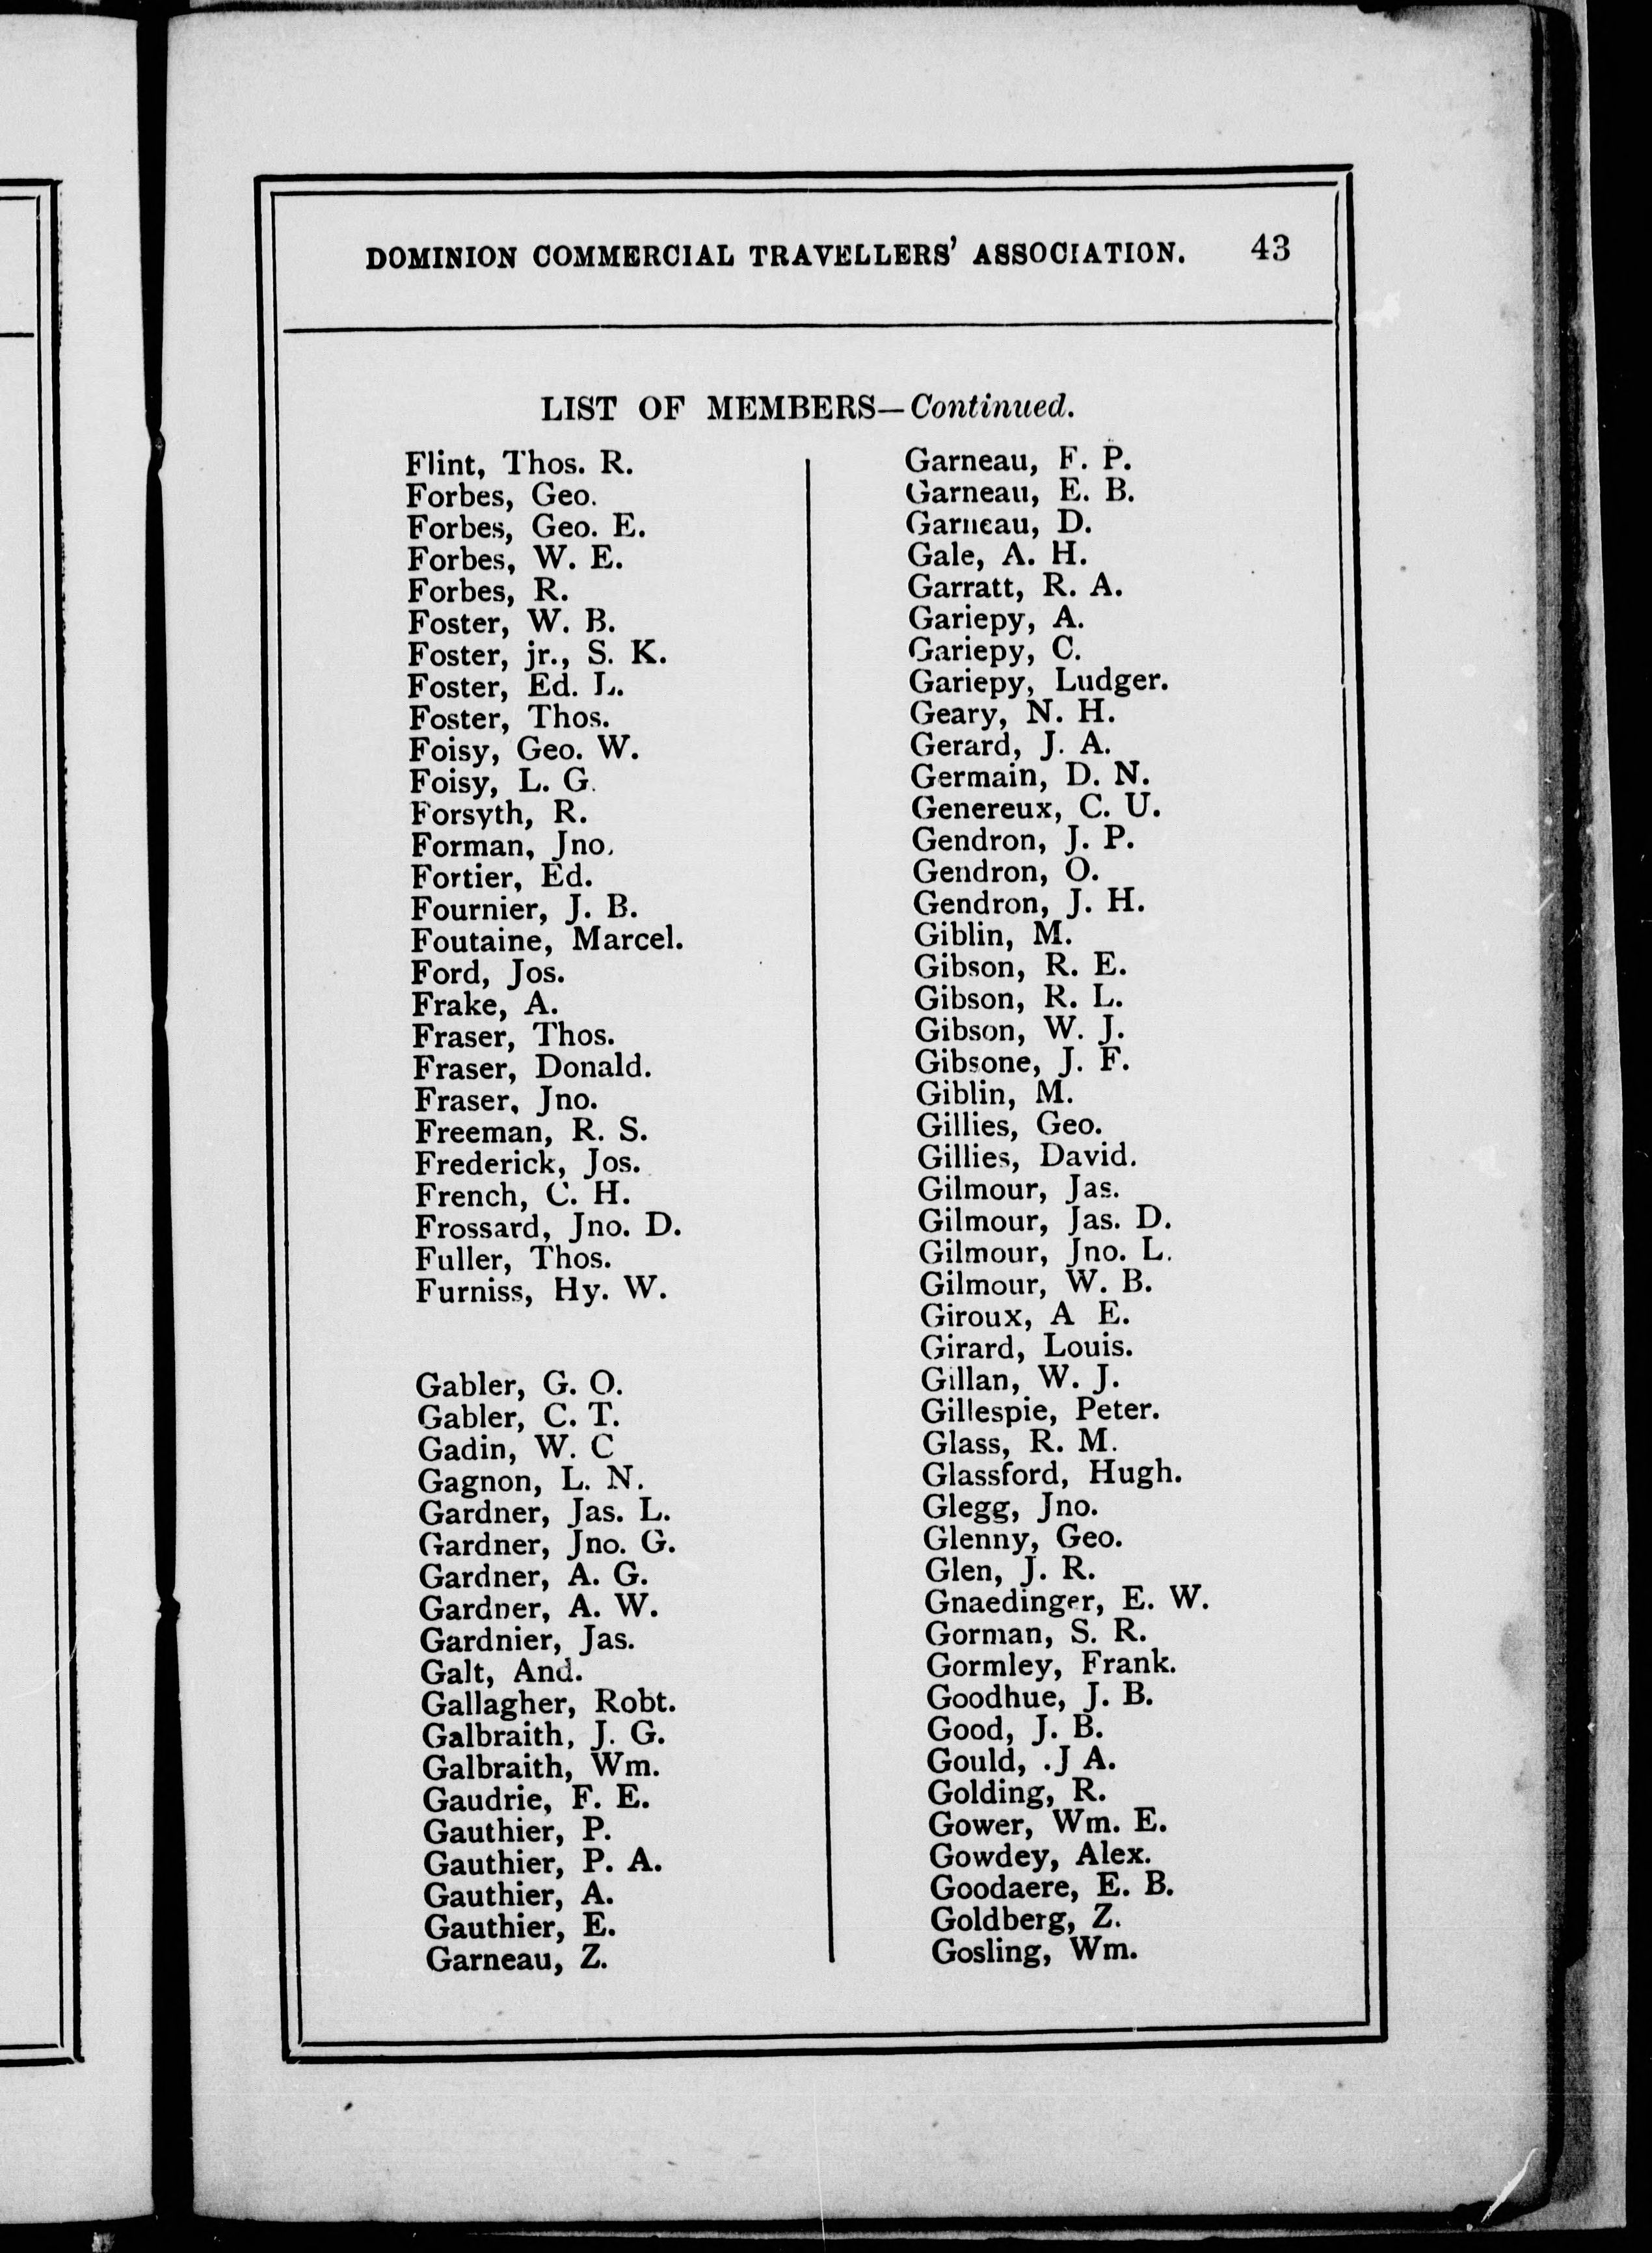 DOMINION COMMERCIAL TRAVELLERS' ASSOCIATION. 43
LIST OF MEMBERS—Continued.
Flint, Thos. R.
Forbes, Geo.
Forbes, Geo. E.
Forbes, W. E.
Forbes, R.
Foster, W. B.
Foster, jr., S. K.
Foster, Ed. L.
Foster, Thos.
Foisy, Geo. W.
Foisy, L. G.
Forsyth, R.
Forman, Jno.
Fortier, Ed.
Fournier, J. B.
Foutaine, Marcel.
Ford, Jos.
Frake, A.
Fraser, Thos.
Fraser, Donald.
Fraser, Jno.
Freeman, R. S.
Frederick, Jos.
French, C. H.
Frossard, Jno. D.
Fuller, Thos.
Furniss, Hy. W.
Gabler, G. O.
Gabler, C. T.
Gadin, W. C
Gagnon, L. N.
Gardner, Jas. L.
Gardner, Jno. G.
Gardner, A. G.
Gardner, A. W.
Gardnier, Jas.
Galt, And.
Gallagher, Robt.
Galbraith, J. G.
Galbraith, Wm.
Gaudrie, F. E.
Gauthier, P.
Gauthier, P. A.
Gauthier, A.
Gauthier, E.
Garneau, Z.
Garneau, F. P.
Garneau, E. B.
Garneau, D.
Gale, A. H.
Garratt, R. A.
Gariepy, A.
Gariepy, C.
Gariepy, Ludger.
Geary, N. H.
Gerard, J. A.
Germain, D. N.
Genereux, C. U.
Gendron, J. P.
Gendron, O.
Gendron, J. H.
Giblin, M.
Gibson, R. E.
Gibson, R. L.
Gibson, W. J.
Gibsone, J. F.
Giblin, M.
Gillies, Geo.
Gillies, David.
Gilmour, Jas.
Gilmour, Jas. D.
Gilmour, Jno. L.
Gilmour, W. B.
Giroux, A E.
Girard, Louis.
Gillan, W. J.
Gillespie, Peter.
Glass, R. M.
Glassford, Hugh.
Glegg, Jno.
Glenny, Geo.
Glen, J. R.
Gnaedinger, E. W.
Gorman, S. R.
Gormley, Frank.
Goodhue, J. B.
Good, J. B.
Gould, .J A.
Golding, R.
Gower, Wm. E.
Gowdey, Alex.
Goodaere, E. B.
Goldberg, Z.
Gosling, Wm.